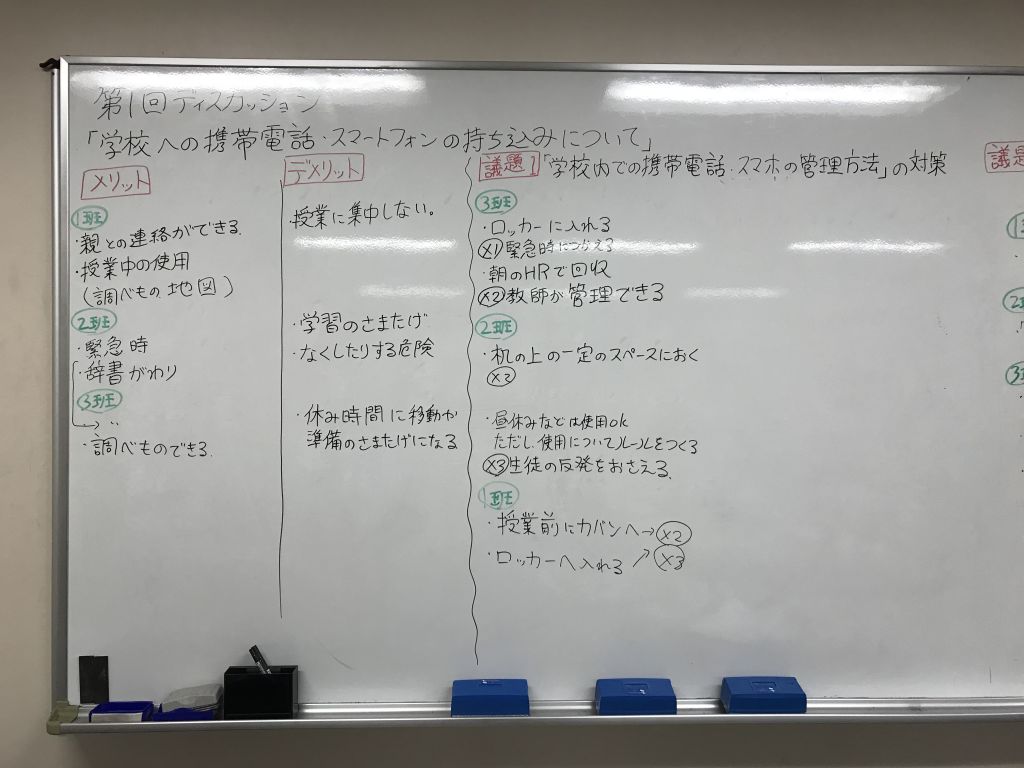 第1回ディスカッション
「学校への携帯電話・スマートフォンの持ち込みについて」
メリット
1班
・親との連絡ができる
・授業中の使用
(調べもの、地図)
2班
・緊急時
・辞書がわり
3班
→ 〃
・調べものできる。
デメリット
・授業に集中しない。
・学習のさまたげ
・なくしたりする危険
・休み時間に移動や
準備のさまたげになる
議題1「学校内での携帯電話・スマホの管理方法」の対策
3班
・ロッカーに入れる
×1 緊急時につかえる
・朝のHRで回収
×2 教師が管理できる
2班
・机の上の一定のスペースにおく
×2
・昼休みなどは使用ok
ただし、使用についてルールをつくる
×3 生徒の反発をおさえる
1班
・授業前にカバンへ→×2
・ロッカーへ入れる ↗×3
議題
1
2
3